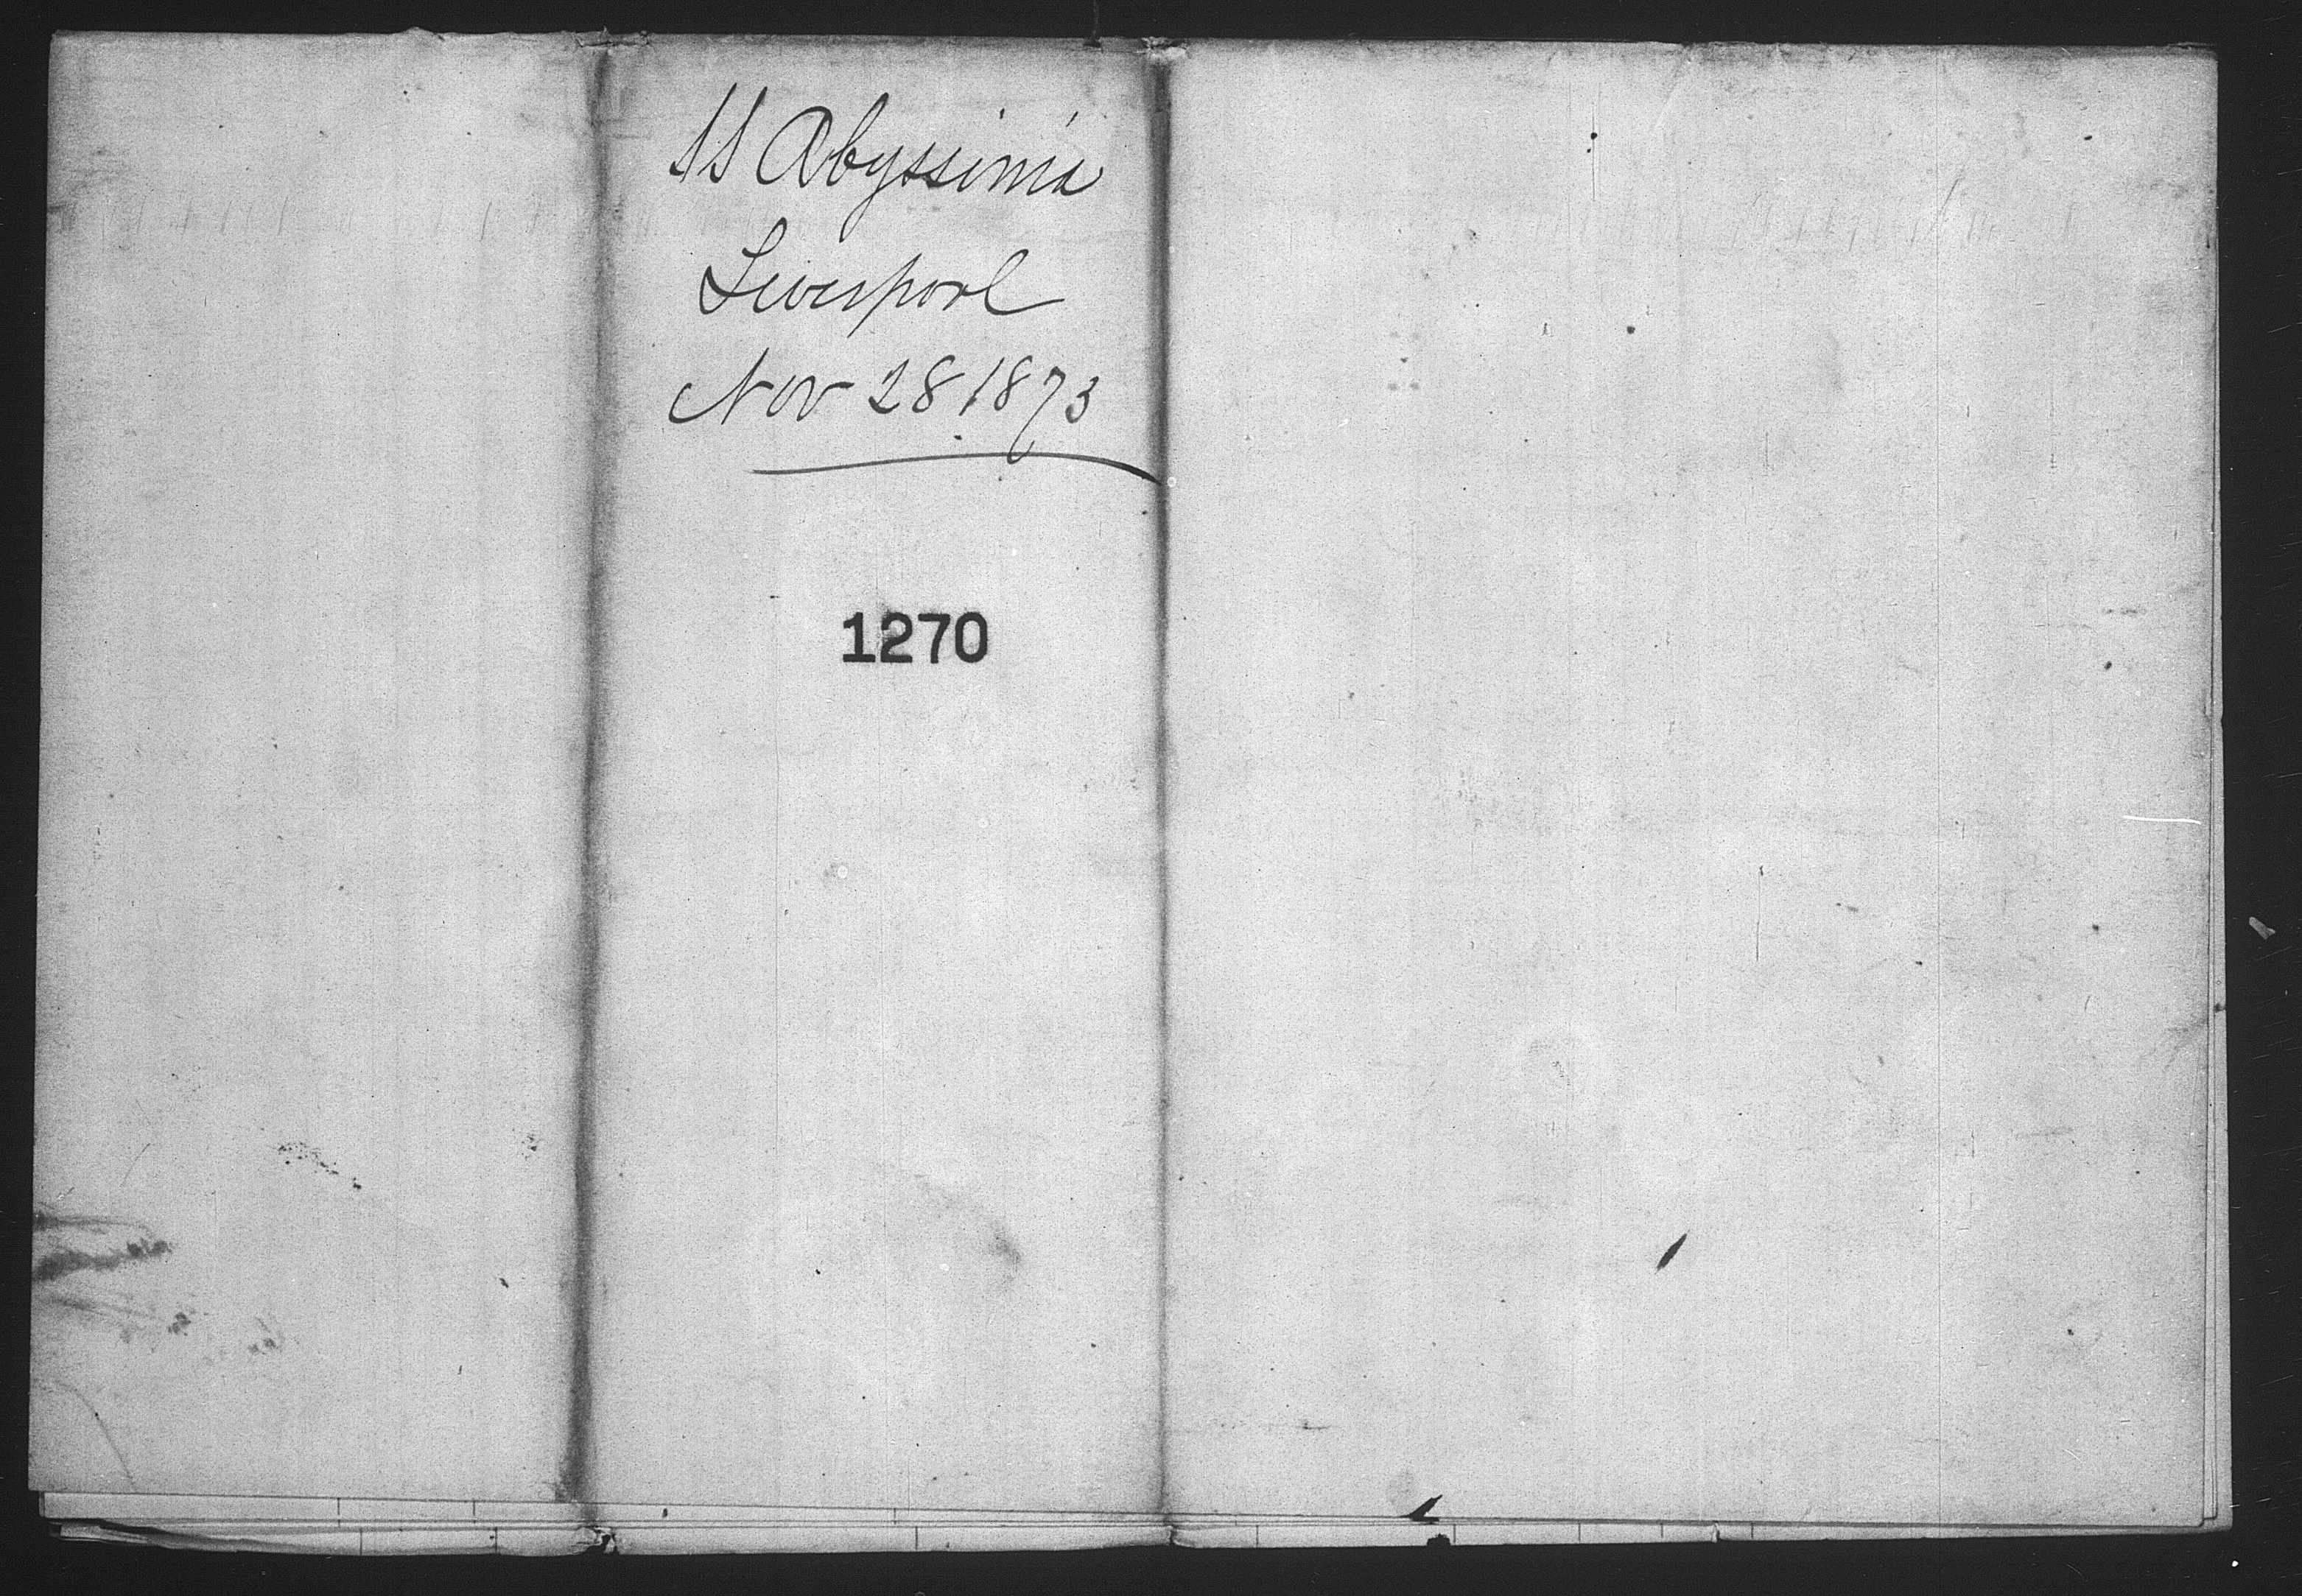 SS Abyssinia
Liverpool
Nov 28 1873
1270